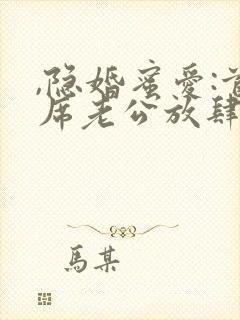 ,隐婚蜜爱:首
席老公放肆
馬某